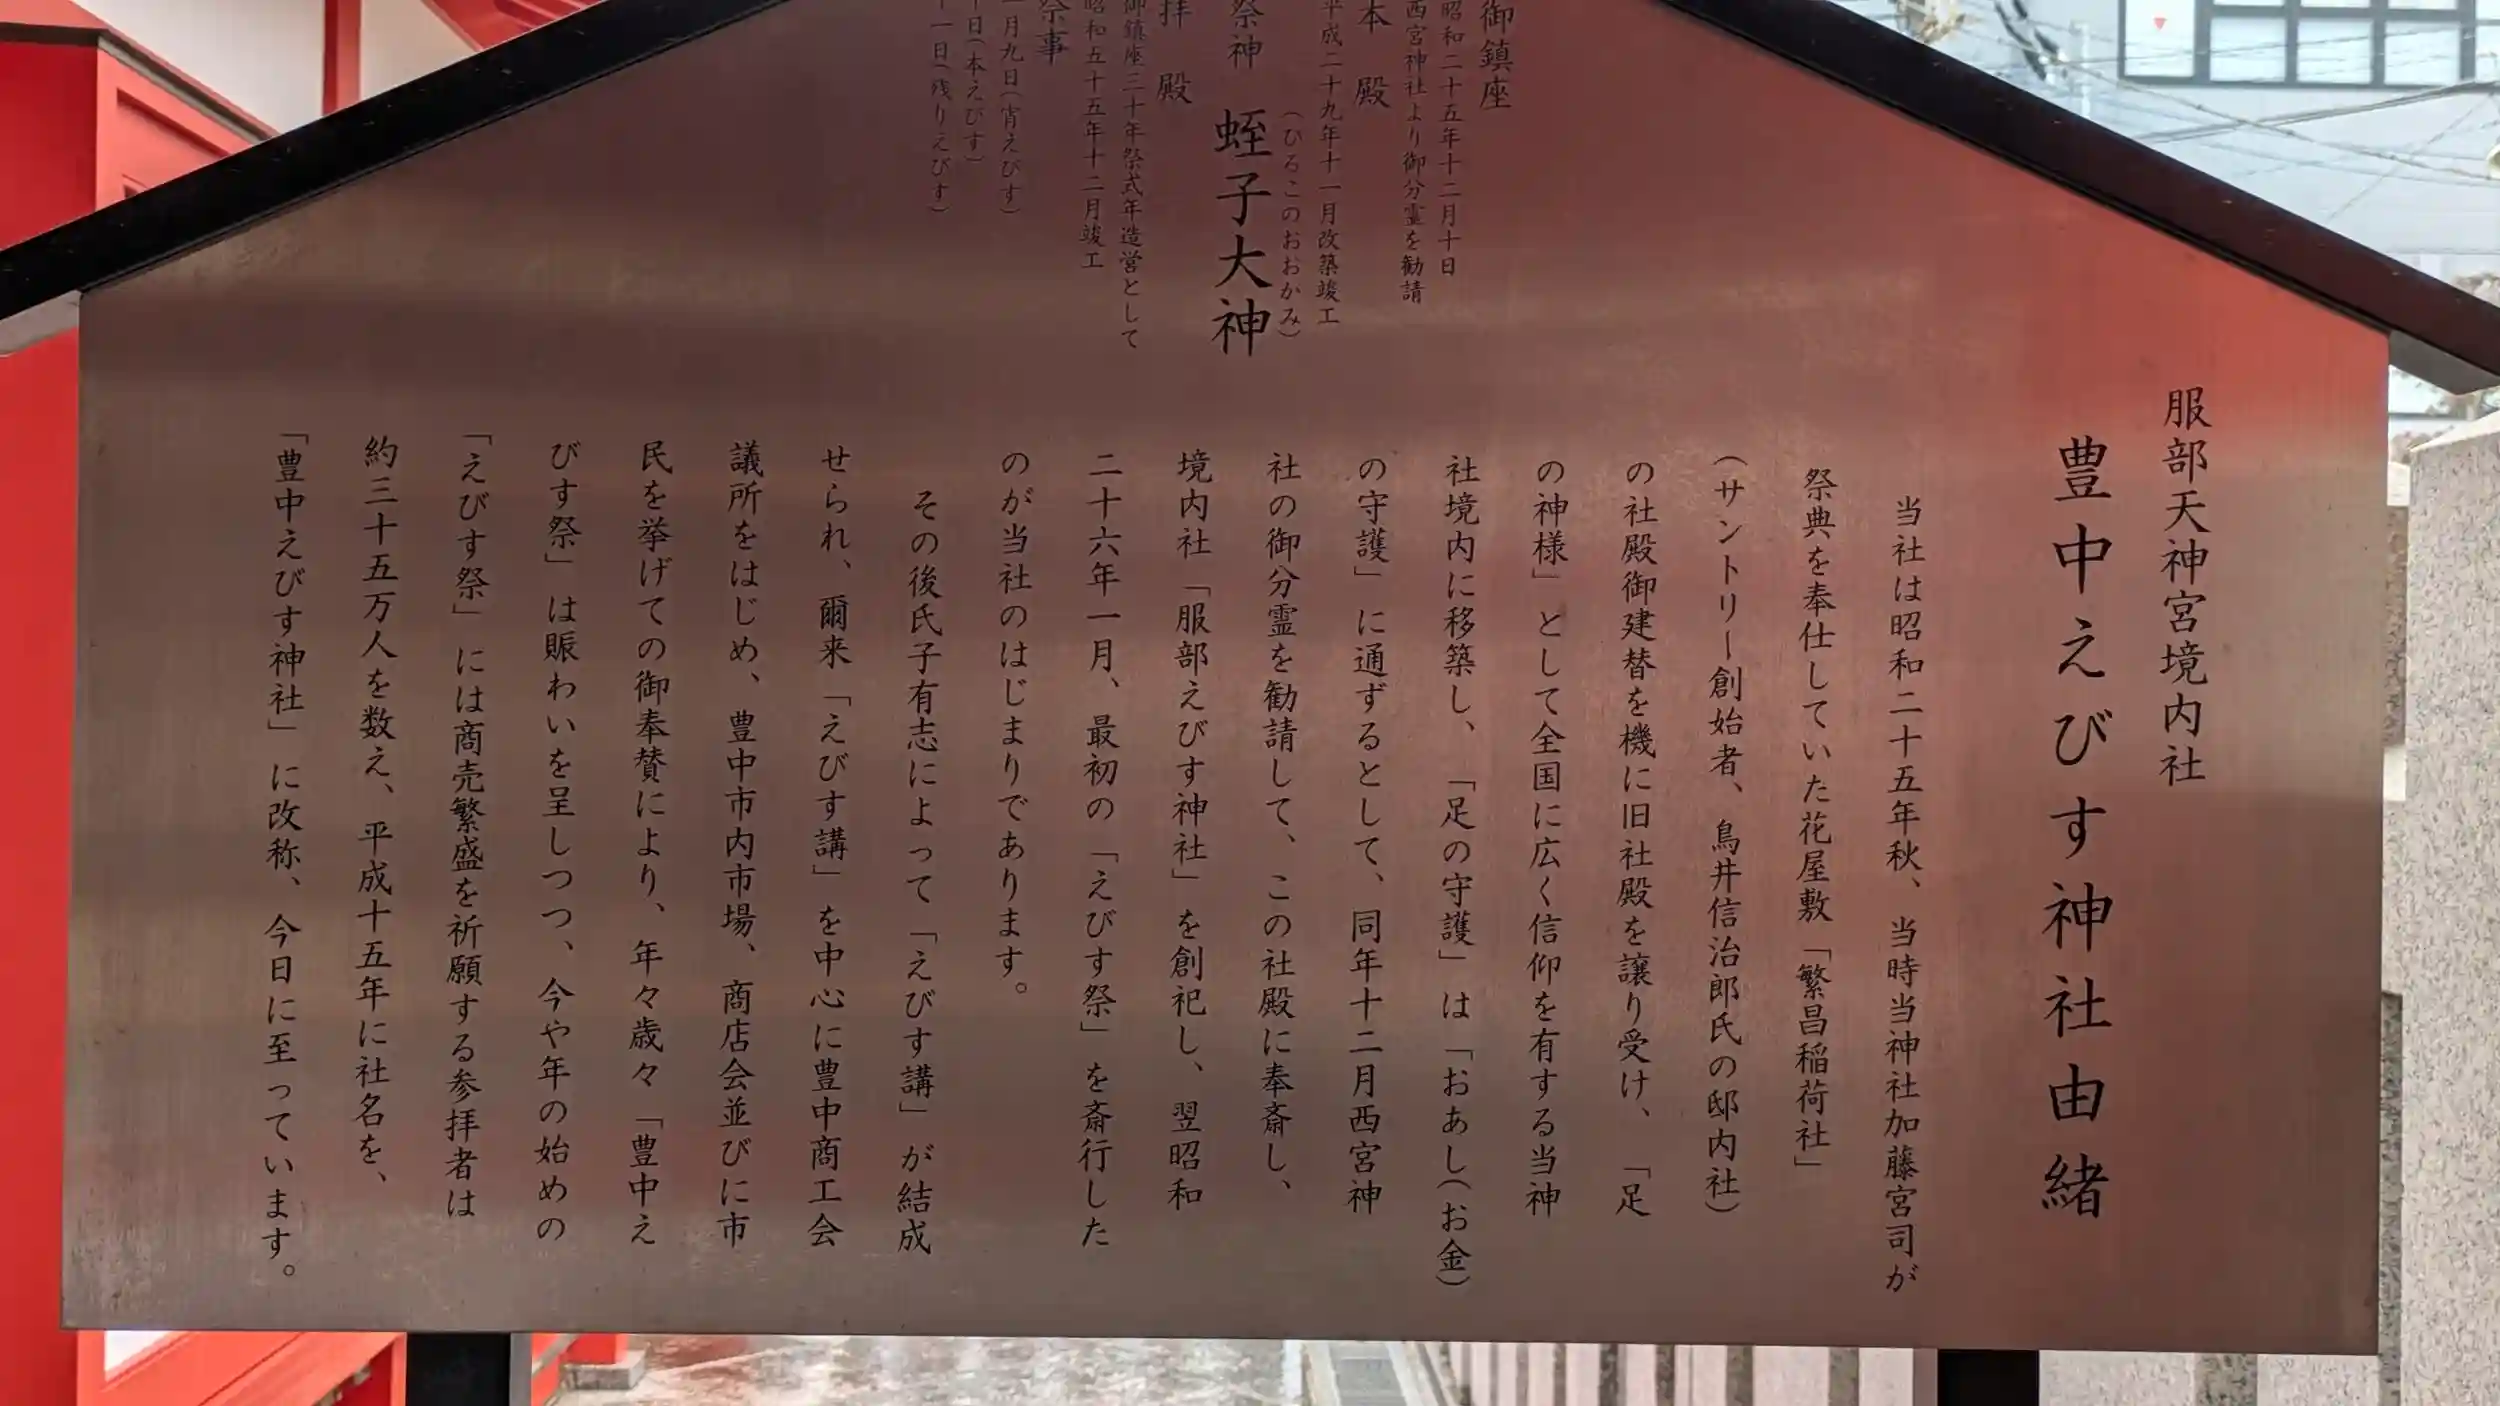 服部天神宮境内社
豊中えびす神社由緒
当社は昭和二十五年秋、当時当神社加藤宮司が
祭典を奉仕していた花屋敷「繁昌稲荷社」
(サントリー創始者、鳥井信治郎氏の邸内社)
の社殿御建替を機に旧社殿を譲り受け、「足
の神様」として全国に広く信仰を有する当神
社境内に移築し、「足の守護」は「おあし(お金)
の守護」に通ずるとして、同年十二月西宮神
社の御分霊を勧請して、この社殿に奉斎し、
境内社「服部えびす神社」を創祀し、翌昭和
二十六年一月、最初の「えびす祭」を斎行した
のが当社のはじまりであります。
その後氏子有志によって「えびす講」が結成
せられ、爾来「えびす講」を中心に豊中商工会
議所をはじめ、豊中市内市場、商店会並びに市
民を挙げての御奉賛により、年々歳々「豊中え
びす祭」は賑わいを呈しつつ、今や年の始めの
「えびす祭」には商売繁盛を祈願する参拝者は
約三十五万人を数え、平成十五年に社名を、
「豊中えびす神社」に改称、今日に至っています。
御鎮座
昭和二十五年十二月十日
西宮神社より御分霊を勧請
本殿
平成二十九年十一月改築竣工
祭神 蛭子大神
(ひるこのおおかみ)
拝殿
御鎮座三十年祭式年造営として
昭和五十五年十二月竣工
祭事
一月九日(宵えびす)
十日(本えびす)
十一日(残りえびす)